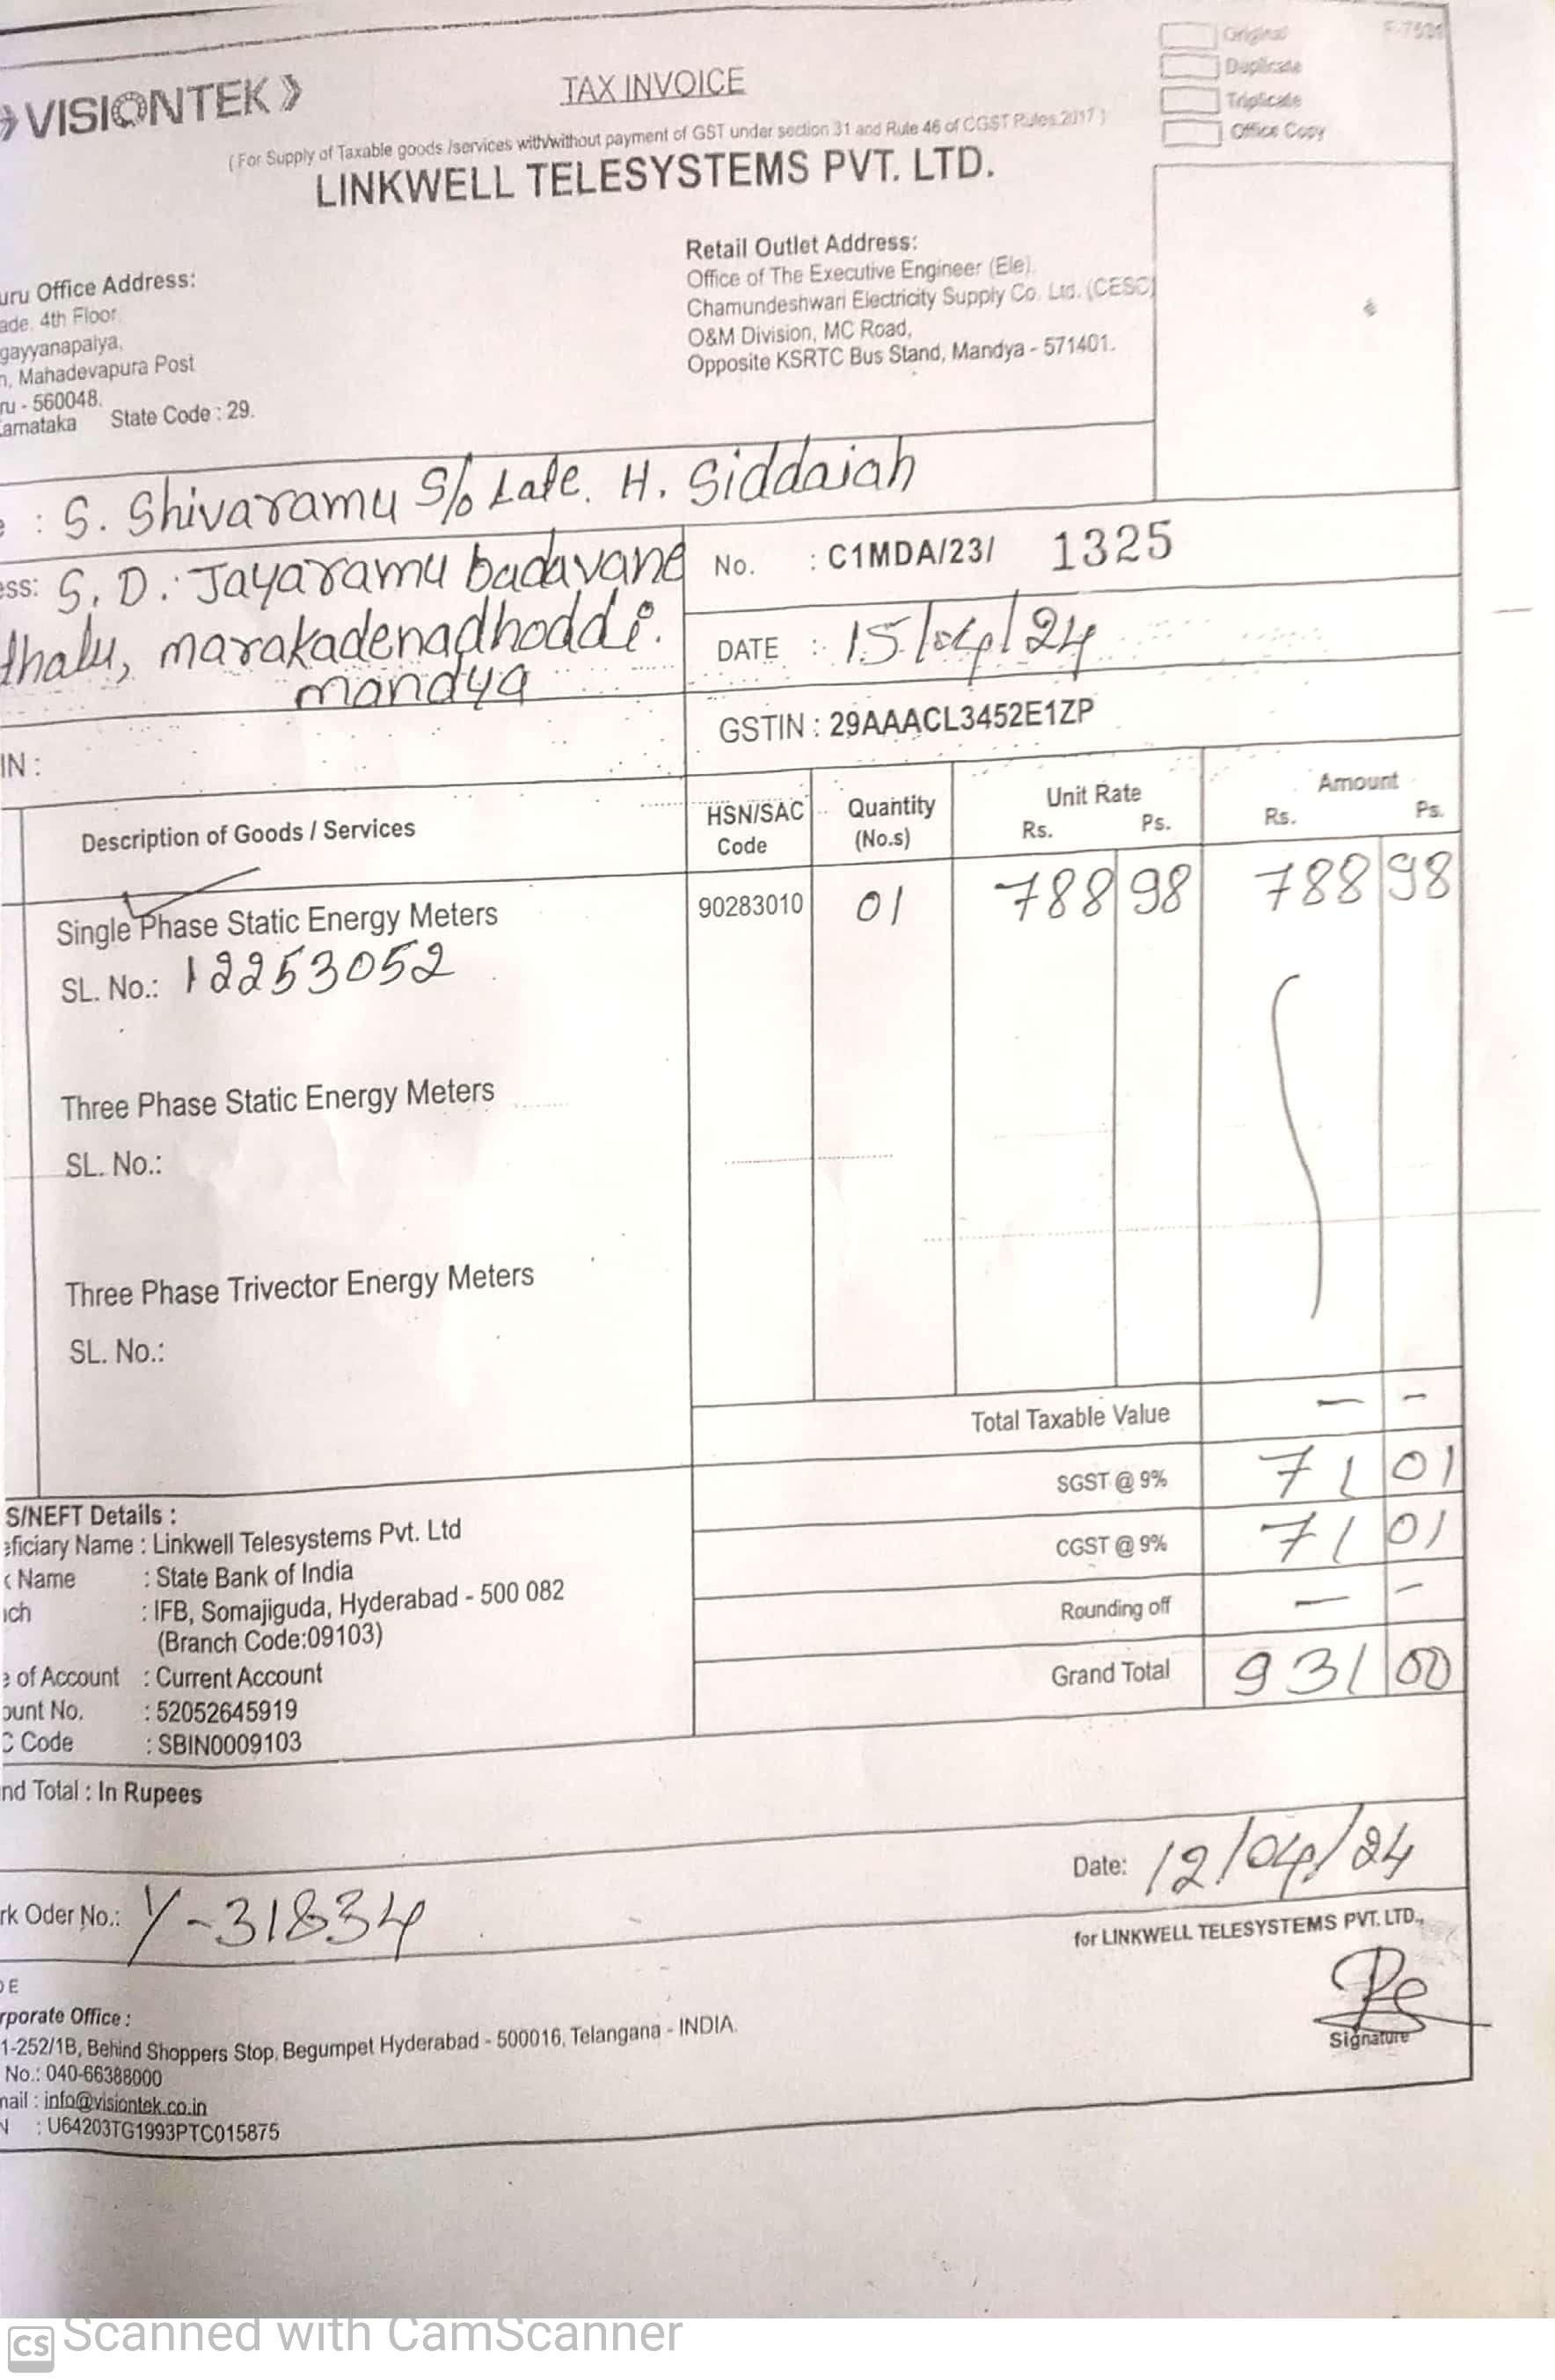 Original
F-7531
Duplicate
Triplicate
Office Copy
VISIONTEK
TAX INVOICE
(For Supply of Taxable goods /services with/without payment of GST under section 31 and Rule 46 of CGST Rules 2017)
LINKWELL TELESYSTEMS PVT. LTD.
uru Office Address:
ade. 4th Floor
gayyanapalya,
n, Mahadevapura Post
ru - 560048.
arnataka State Code : 29.
Retail Outlet Address:
Office of The Executive Engineer (Ele)
Chamundeshwari Electricity Supply Co. Ltd. (CESC)
O&M Division, MC Road,
Opposite KSRTC Bus Stand, Mandya - 571401.
: S. Shivaramu S/o Late. H. Siddaiah
ess: S. D. Jayaramu badavane
thalu, marakadenadhoddi.
mandya
No. : C1MDA/23/ 1325
DATE : 15/04/24
IN :
GSTIN : 29AAACL3452E1ZP
Description of Goods / Services HSN/SAC Code Quantity (No.s) Unit Rate Rs. Ps. Amount Rs. Ps.
Single Phase Static Energy Meters 90283010 01 788 98 788 98
SL. No.: 12253052
Three Phase Static Energy Meters
SL. No.:
Three Phase Trivector Energy Meters
SL. No.:
Total Taxable Value — -
SGST @ 9% 71 01
CGST @ 9% 71 01
Rounding off — -
Grand Total 931 00
S/NEFT Details :
eficiary Name : Linkwell Telesystems Pvt. Ltd
k Name : State Bank of India
nch : IFB, Somajiguda, Hyderabad - 500 082
(Branch Code:09103)
e of Account : Current Account
ount No. : 52052645919
C Code : SBIN0009103
nd Total : In Rupees
Date: 12/04/24
rk Oder No.: Y-31834
for LINKWELL TELESYSTEMS PVT. LTD.,
Signature
DE
rporate Office :
1-252/1B, Behind Shoppers Stop, Begumpet Hyderabad - 500016, Telangana - INDIA.
No.: 040-66388000
mail : info@visiontek.co.in
N : U64203TG1993PTC015875
CS Scanned with CamScanner